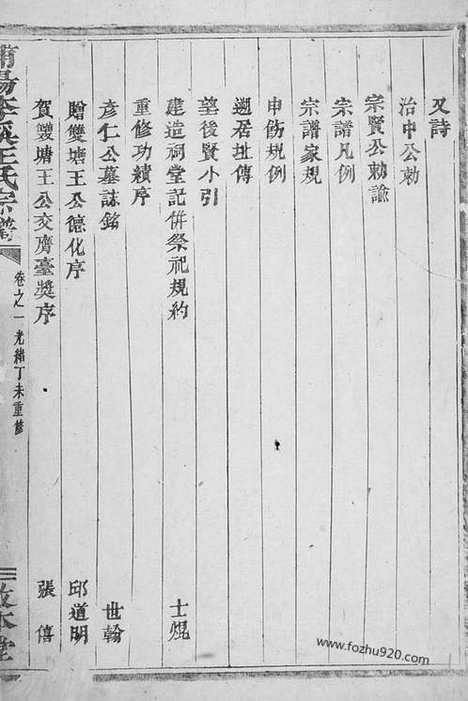 又詩
治中公勅
宗賢公勅諭
宗譜凡例
宗譜家規
申飭規例
遡居址傳
望後賢小引
建造祠堂記併祭祀規約 士焜
重修功績序
彥仁公墓誌銘 世翰
贈雙塘王公德化序 邱道明
賀雙塘王公交膺臺獎序 張僖
王氏宗譜
卷之一 光緒丁未重修
本堂
www.fozhu920.com